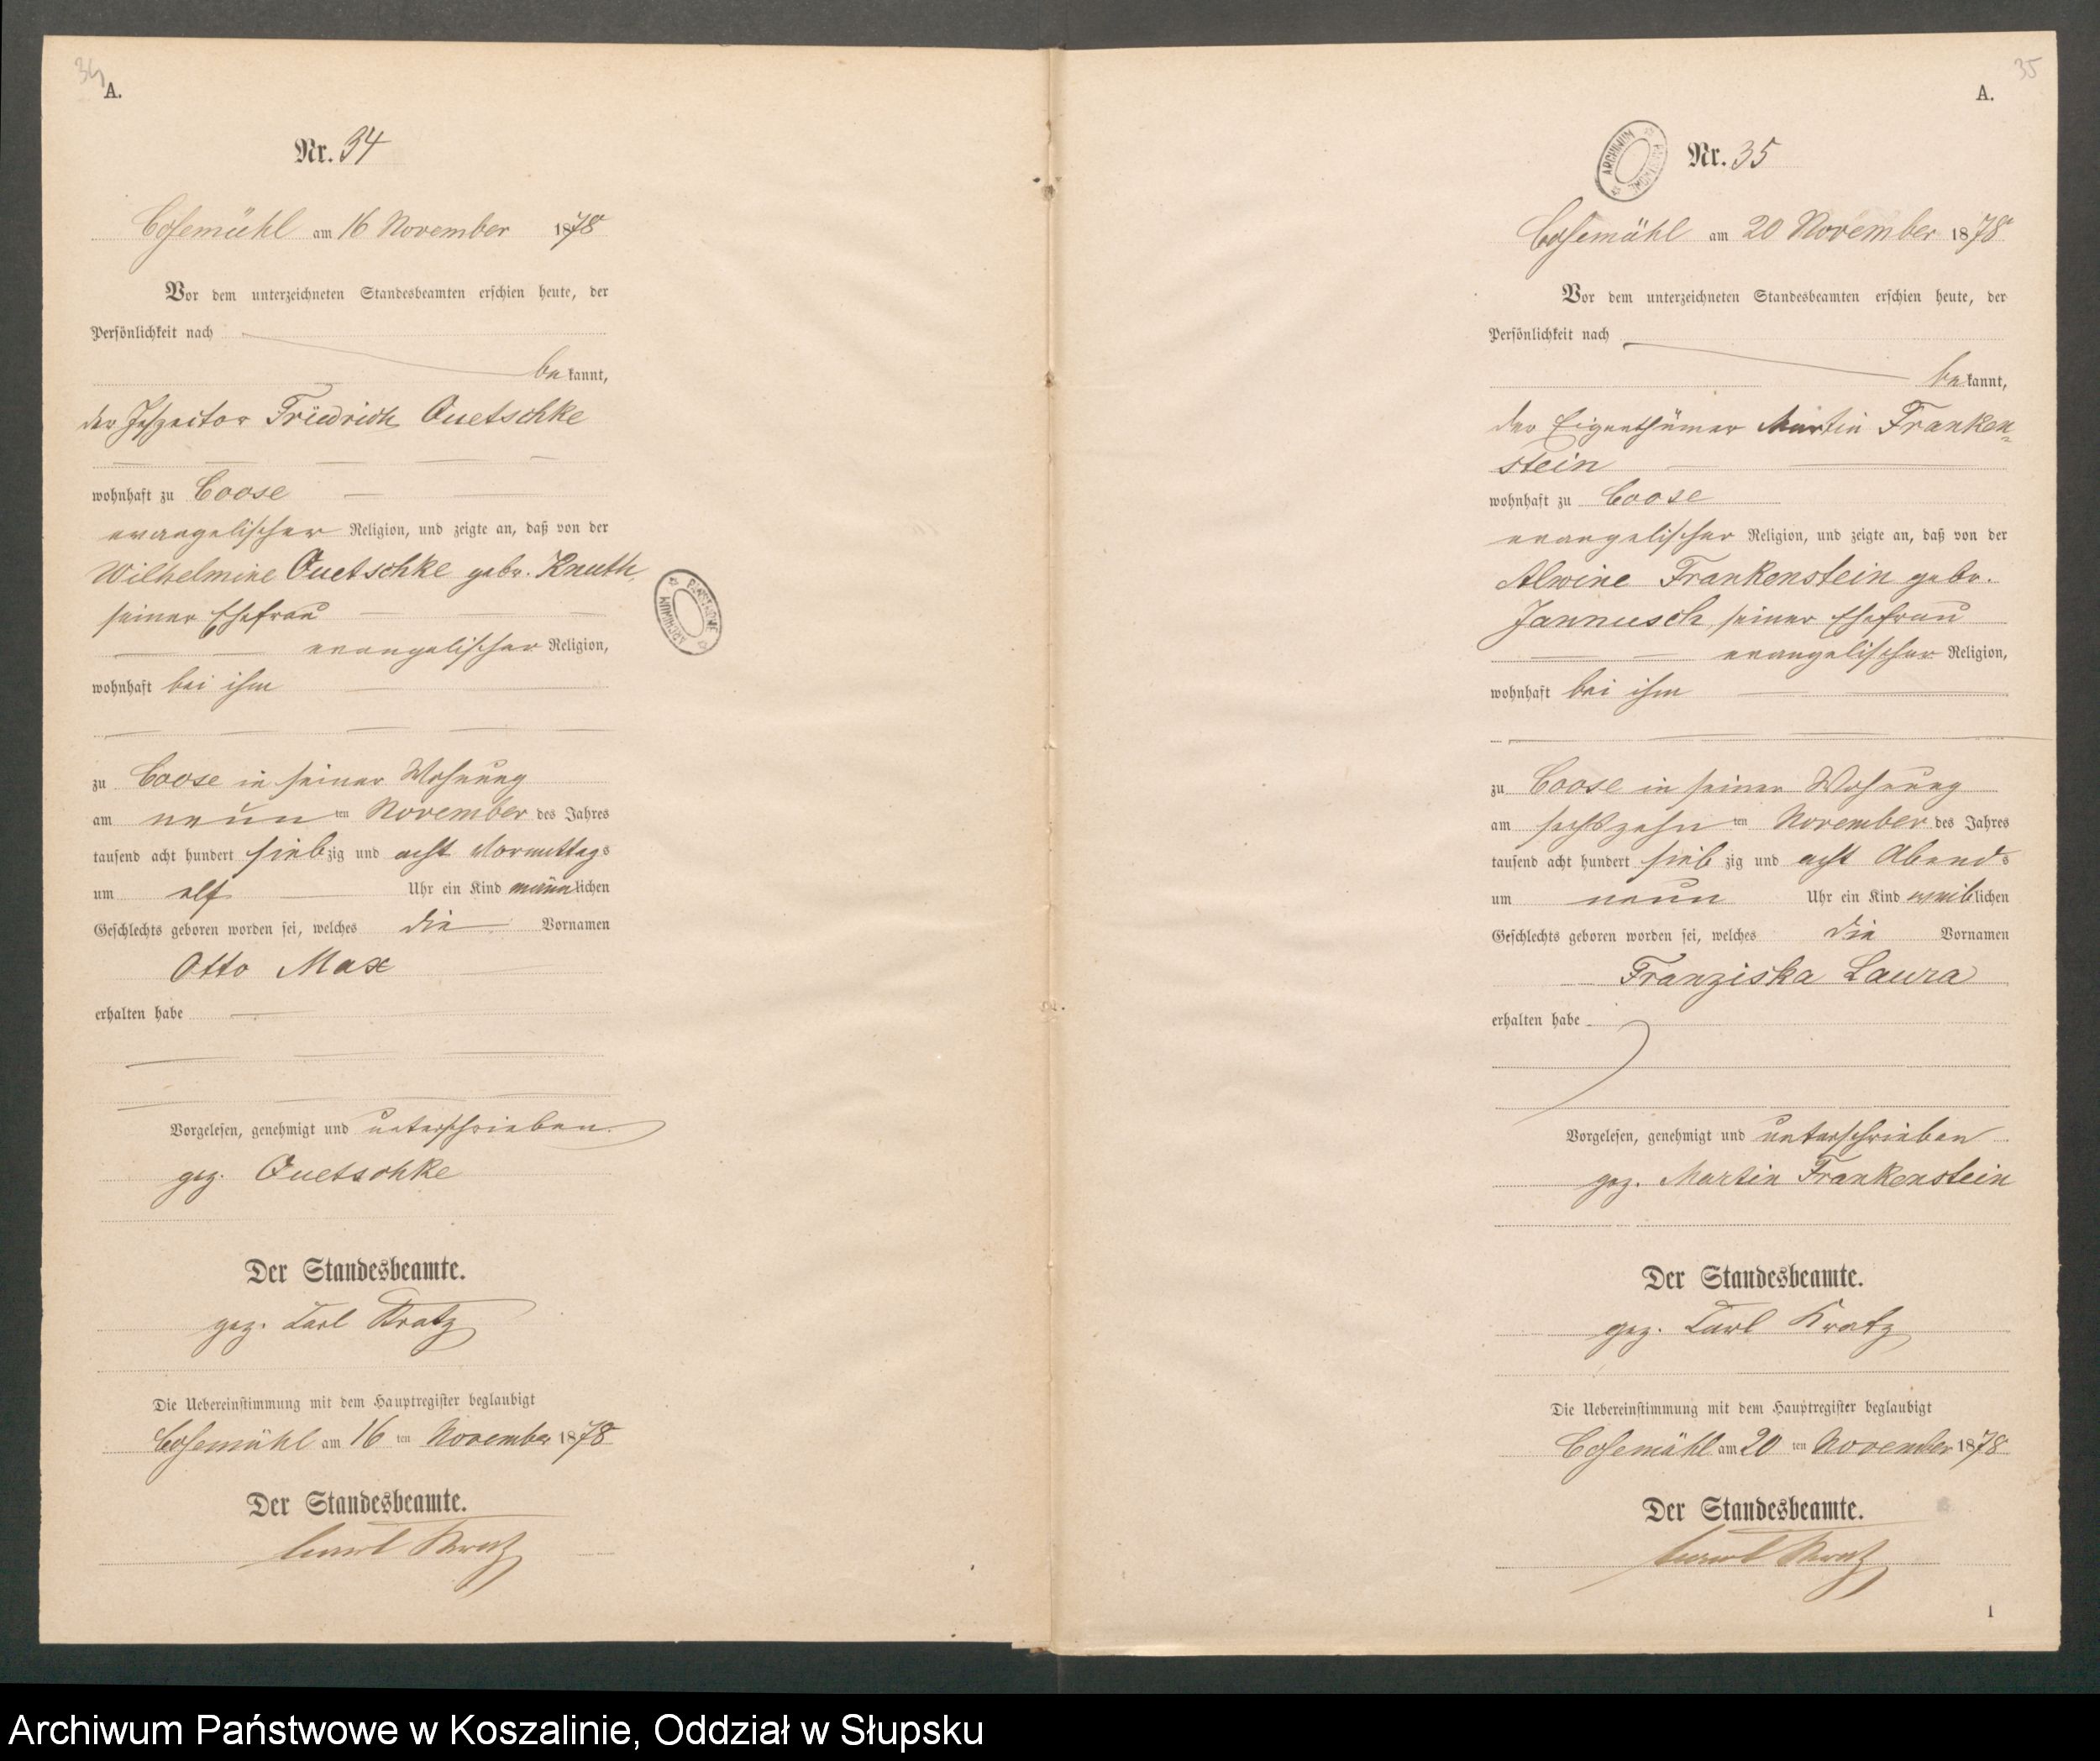 34
A.
Nr. 34
Cosemühl am 16 November 1878
Vor dem unterzeichneten Standesbeamten erschien heute, der
Persönlichkeit nach
bekannt,
der Inspector Friedrich Quetschke
wohnhaft zu Coose
evangelischer Religion, und zeigte an, daß von der
Wilhelmine Quetschke gebr. Knuth,
seiner Ehefrau
evangelischer Religion,
wohnhaft bei ihm
zu Coose in seiner Wohnung
am neunten November des Jahres
tausend acht hundert siebzig und acht Vormittags
um elf Uhr ein Kind männlichen
Geschlechts geboren worden sei, welches die Vornamen
Otto Max
erhalten habe
Vorgelesen, genehmigt und unterschrieben.
gez. Quetschke
Der Standesbeamte.
gez. Carl Kratz
Die Uebereinstimmung mit dem Hauptregister beglaubigt
Cosemühl am 16 ten November 1878
Der Standesbeamte.
Carl Kratz
ARCHIWUM PAŃSTWOWE
35
A.
ARCHIWUM PAŃSTWOWE
Nr. 35
Cosemühl am 20 November 1878
Vor dem unterzeichneten Standesbeamten erschien heute, der
Persönlichkeit nach
bekannt,
der Eigenthümer Martin Franken-
stein
wohnhaft zu Coose
evangelischer Religion, und zeigte an, daß von der
Alwine Frankenstein gebr.
Jannusch, seiner Ehefrau
evangelischer Religion,
wohnhaft bei ihm
zu Coose in seiner Wohnung
am sechszehnten November des Jahres
tausend acht hundert siebzig und acht Abends
um neun Uhr ein Kind weiblichen
Geschlechts geboren worden sei, welches die Vornamen
Franziska Laura
erhalten habe
Vorgelesen, genehmigt und unterschrieben
gez. Martin Frankenstein
Der Standesbeamte.
gez. Carl Kratz
Die Uebereinstimmung mit dem Hauptregister beglaubigt
Cosemühl am 20 ten November 1878
Der Standesbeamte.
Carl Kratz
1
Archiwum Państwowe w Koszalinie, Oddział w Słupsku